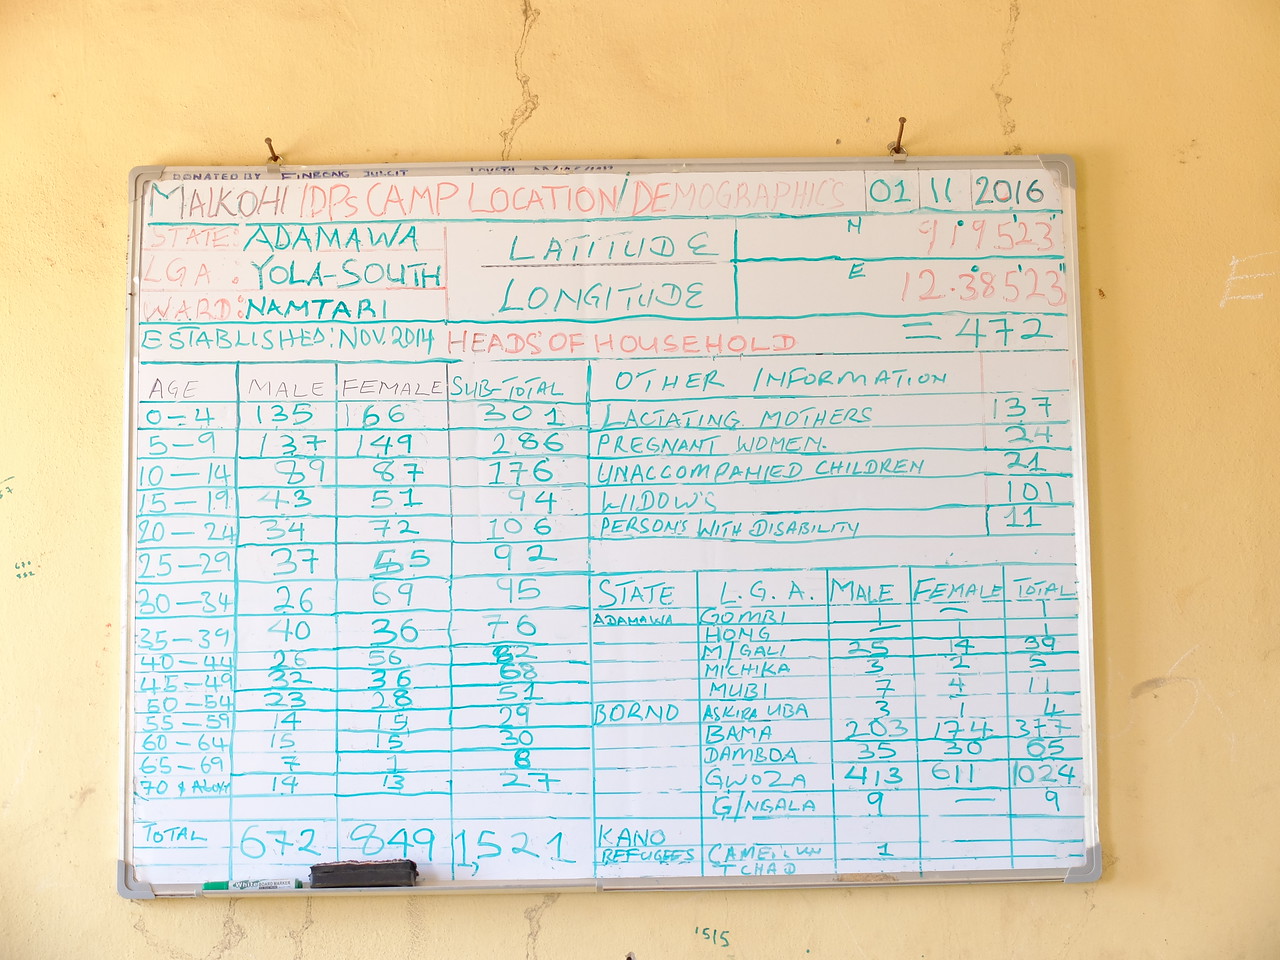 DONATED BY FINBONG JULCIT
MALKOHI IDPs CAMP LOCATION/DEMOGRAPHICS 01 11 2016
STATE: ADAMAWA
LGA: YOLA-SOUTH
WARD: NAMTARI
LATITUDE N 91°9'523"
LONGITUDE E 12.38°5'23"
ESTABLISHED: NOV. 2014 HEADS OF HOUSEHOLD = 472
AGE MALE FEMALE SUB-TOTAL
0-4 135 166 301
5-9 137 149 286
10-14 89 87 176
15-19 43 51 94
20-24 34 72 106
25-29 37 55 92
30-34 26 69 95
35-39 40 36 76
40-44 26 56 82
45-49 32 36 68
50-54 23 28 51
55-59 14 15 29
60-64 15 15 30
65-69 7 1 8
70 & ABOVE 14 13 27
TOTAL 672 849 1,521
OTHER INFORMATION
LACTATING MOTHERS 137
PREGNANT WOMEN. 24
UNACCOMPANIED CHILDREN 21
WIDOW'S 101
PERSON'S WITH DISABILITY 11
STATE L.G.A. MALE FEMALE TOTAL
ADAMAWA GOMBI 1 — 1
HONG — 1 1
M/GALI 25 14 39
MICHIKA 3 2 5
MUBI 7 4 11
BORNO ASKIRA UBA 3 1 4
BAMA 203 174 377
DAMBOA 35 30 65
GWOZA 413 611 1024
G/NGALA 9 — 9
KANO
REFUGEES 1
TCHAD
1515
E